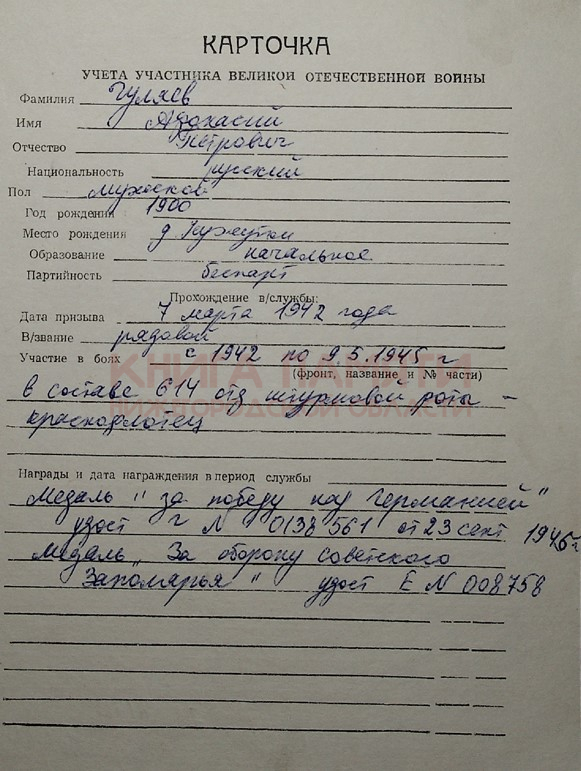 КАРТОЧКА
УЧЕТА УЧАСТНИКА ВЕЛИКОЙ ОТЕЧЕСТВЕННОЙ ВОЙНЫ
Фамилия Гуляев
Имя Афонасий
Отчество Петрович
Национальность русский
Пол мужской
Год рождения 1900
Место рождения д.
Образование начальное
Партийность беспарт
Прохождение в/службы:
Дата призыва 7 марта 1942 года
В/звание рядовой
Участие в боях с 1942 по 9.5.1945 г
(фронт, название и № части)
КНИГА ПАМЯТИ
НИЖЕГОРОДСКОЙ ОБЛАСТИ
в составе 614 отд штурмовой роты -
краснофлотец
Награды и дата награждения в период службы
Медаль "за победу над Германией"
удост г N 0138561 от 23 сент 1945 г
Медаль "За оборону советского
Заполярья" удост Е N 008758